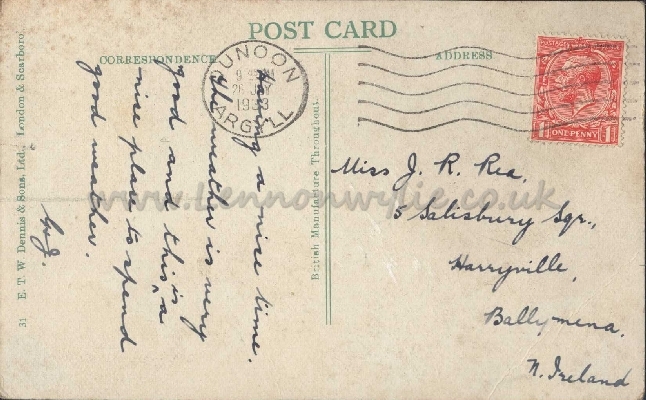 POST CARD
CORRESPONDENCE
ADDRESS
DUNOON
1933
ARGYLL
POSTAGE
ONE PENNY
Having a nice time.
The weather is very
good and this is a
nice place to spend
good weather.
Miss J. R. Rea,
5 Salisbury Sqr.,
Harryville,
Ballymena.
N. Ireland
British Manufacture Throughout.
31 E. T. W. Dennis & Sons, Ltd., London & Scarboro.
www.lennonwylie.co.uk